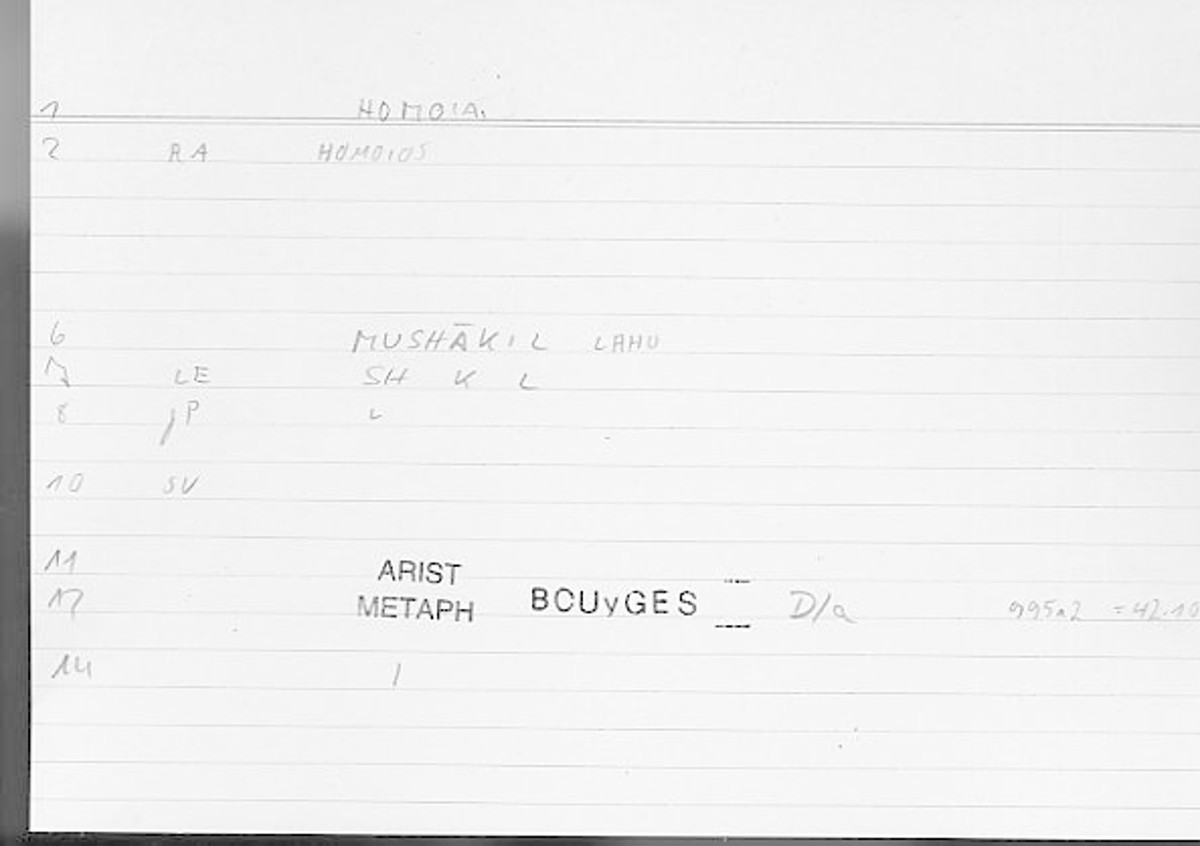 1 HOMOIA.
2 RA HOMOIOS
6 MUSHĀKIL LAHU
7 LE SH K L
8 jP L
10 SV
11 ARIST
17 METAPH BCUyGES D/a 995a2 =42.10
14 /